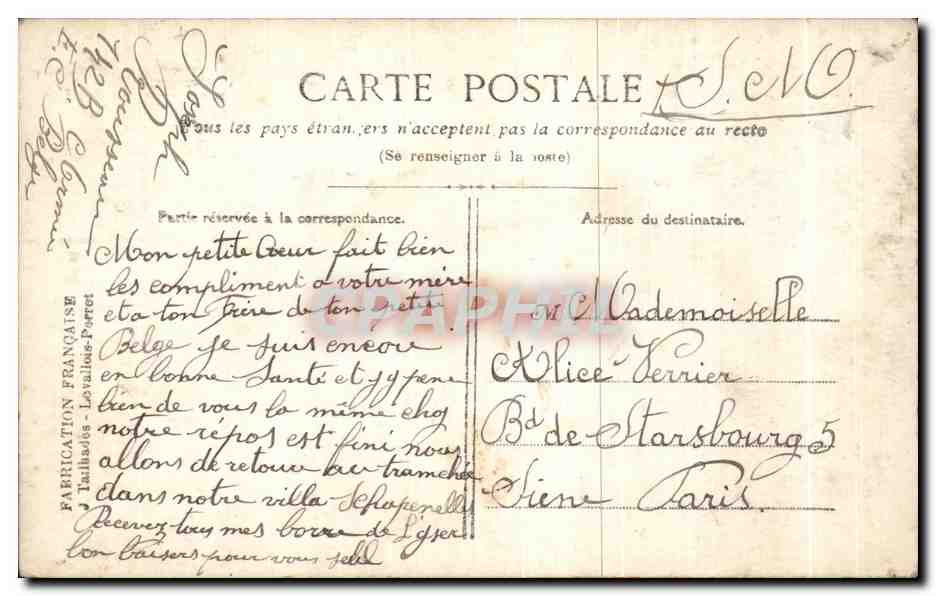 CARTE POSTALE
S.M.
Tous les pays étrangers n'acceptent pas la correspondance au recto
(Se renseigner à la poste)
Partie réservée à la correspondance.
Adresse du destinataire.
Mon petite Coeur fait bien
les compliment a votre mère
et a ton Frère de ton petite
Belge je suis encore
en bonne Santé et jypene
bien de vous la même chos
notre répos est fini nous
allons de retour au tranchée
dans notre villa Schapenelles
Recevez tous mes borre de L'yser
bon baisers pour vous seul
M Mademoiselle
Alice Verrier
Bd de Starsbourg 5
Siene Paris.
Joseph
Coursean
12B
Armée
Belge
FABRICATION FRANÇAISE
J Tailhades - Levallois-Perret
CPAPHIL